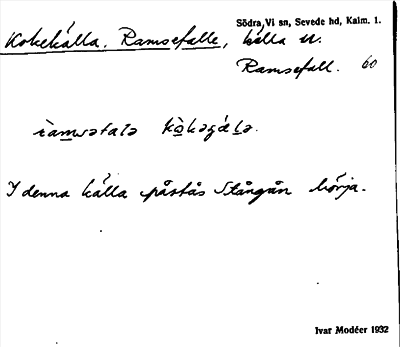 Södra Vi sn, Sevede hd, Kalm. 1.
Kokekälla, Ramsefalle, källa N.
Ramsefall. 60
ramsəfalə kòkəɡálə.
I denna källa påstås Stångån börja.
Ivar Modéer 1932